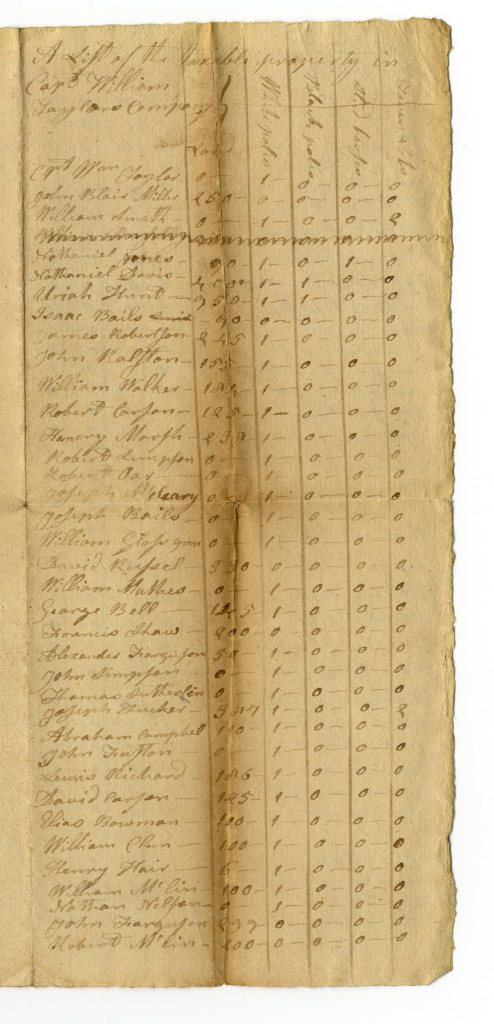 A List of the taxable property in
Capt William
Taylors Company
Land White poles Black poles Stud horses Town Lots
Cpt Wm Taylor 0 - 1 - 0 - 0 - 0
John Blair Miller 250 - 0 - 0 - 0 - 0
William Smith 0 - 1 - 0 - 0 - 2
Nathaniel Jones - 90 - 1 - 0 - 1 - 0
Nathaniel Davis - 400 - 1 - 1 - 0 - 0
Uriah Hunt - 950 - 1 - 1 - 0 - 0
Isaac Bails 90 - 0 - 0 - 0 - 0
James Robertson 245 - 1 - 0 - 0 - 0
John Ralston - 155 - 1 - 0 - 0 - 0
William Walker - 1 - 0 - 0 - 0
Robert Carson - 125 - 1 - 0 - 0 - 0
Hanery Marsh - 1 - 0 - 0 - 0
Robert Simpson 0 - 1 - 0 - 0 - 0
Robert Oar - 0 - 1 - 0 - 0 - 0
Joseph McCleary 0 - 1 - 0 - 0 - 0
Joseph Bails - 0 - 1 - 0 - 0 - 0
William Glass 0 - 1 - 0 - 0 - 0
David Russel 330 - 0 - 0 - 0 - 0
William Mathes - 0 - 1 - 0 - 0 - 0
George Bell - 1 - 0 - 0 - 0
Francis Shaw - 200 - 0 - 0 - 0 - 0
Alexander Farguson 50 - 1 - 0 - 0 - 0
John Simpson 0 - 1 - 0 - 0 - 0
Thomas Sutherlin 0 - 1 - 0 - 0 - 0
Joseph Tucker - 1 - 0 - 0 - 2
Abraham Campbel 110 - 1 - 0 - 0 - 0
John Futton - 0 - 1 - 0 - 0 - 0
Lewis Richard - 186 - 1 - 0 - 0 - 0
David Carson - 125 - 1 - 0 - 0 - 0
Elias Bowman - 100 - 1 - 0 - 0 - 0
William Clun - 100 - 1 - 0 - 0 - 0
Henry Hair - 6 - 1 - 0 - 0 - 0
William McLin - 100 - 1 - 0 - 0 - 0
Nathan Nelson - 0 - 1 - 0 - 0 - 0
John Farguson 299 - 0 - 0 - 0 - 0
Robert McLin - 200 - 0 - 0 - 0 - 0